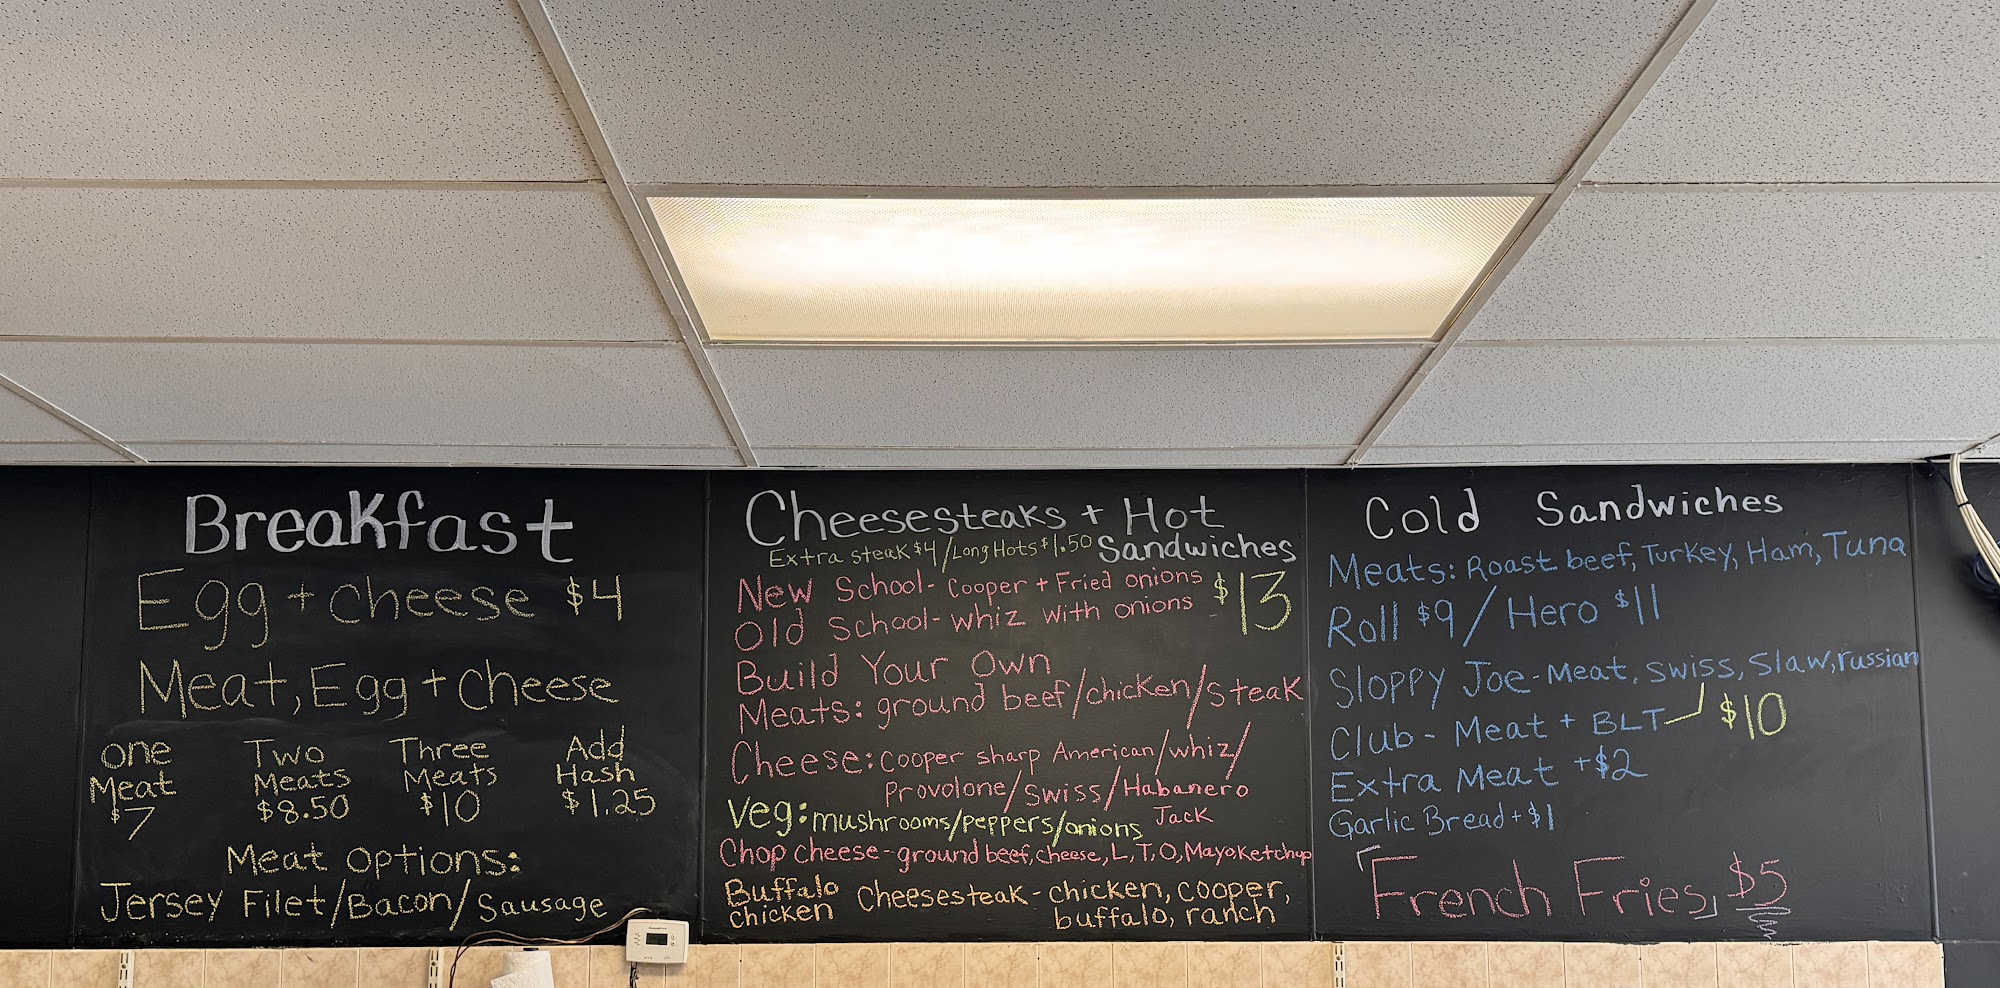 Breakfast
Egg + cheese $4
Meat, Egg + cheese
one Meat $7
Two Meats $8.50
Three Meats $10
Add Hash $1.25
Meat Options:
Jersey Filet/Bacon/Sausage
Cheesesteaks + Hot Sandwiches
Extra steak $4/Long Hots $1.50
New School- Cooper + Fried onions
Old School- whiz with onions
$13
Build Your Own
Meats: ground beef/chicken/steak
Cheese: cooper sharp American/whiz/
Provolone/swiss/Habanero Jack
Veg: mushrooms/peppers/onions
Chop cheese- ground beef, cheese, L, T, O, Mayo, Ketchup
Buffalo chicken Cheesesteak - chicken, cooper,
buffalo, ranch
Cold Sandwiches
Meats: Roast beef, Turkey, Ham, Tuna
Roll $9/Hero $11
Sloppy Joe- Meat, swiss, slaw, russian
Club- Meat + BLT
$10
Extra Meat +$2
Garlic Bread +$1
French Fries, $5